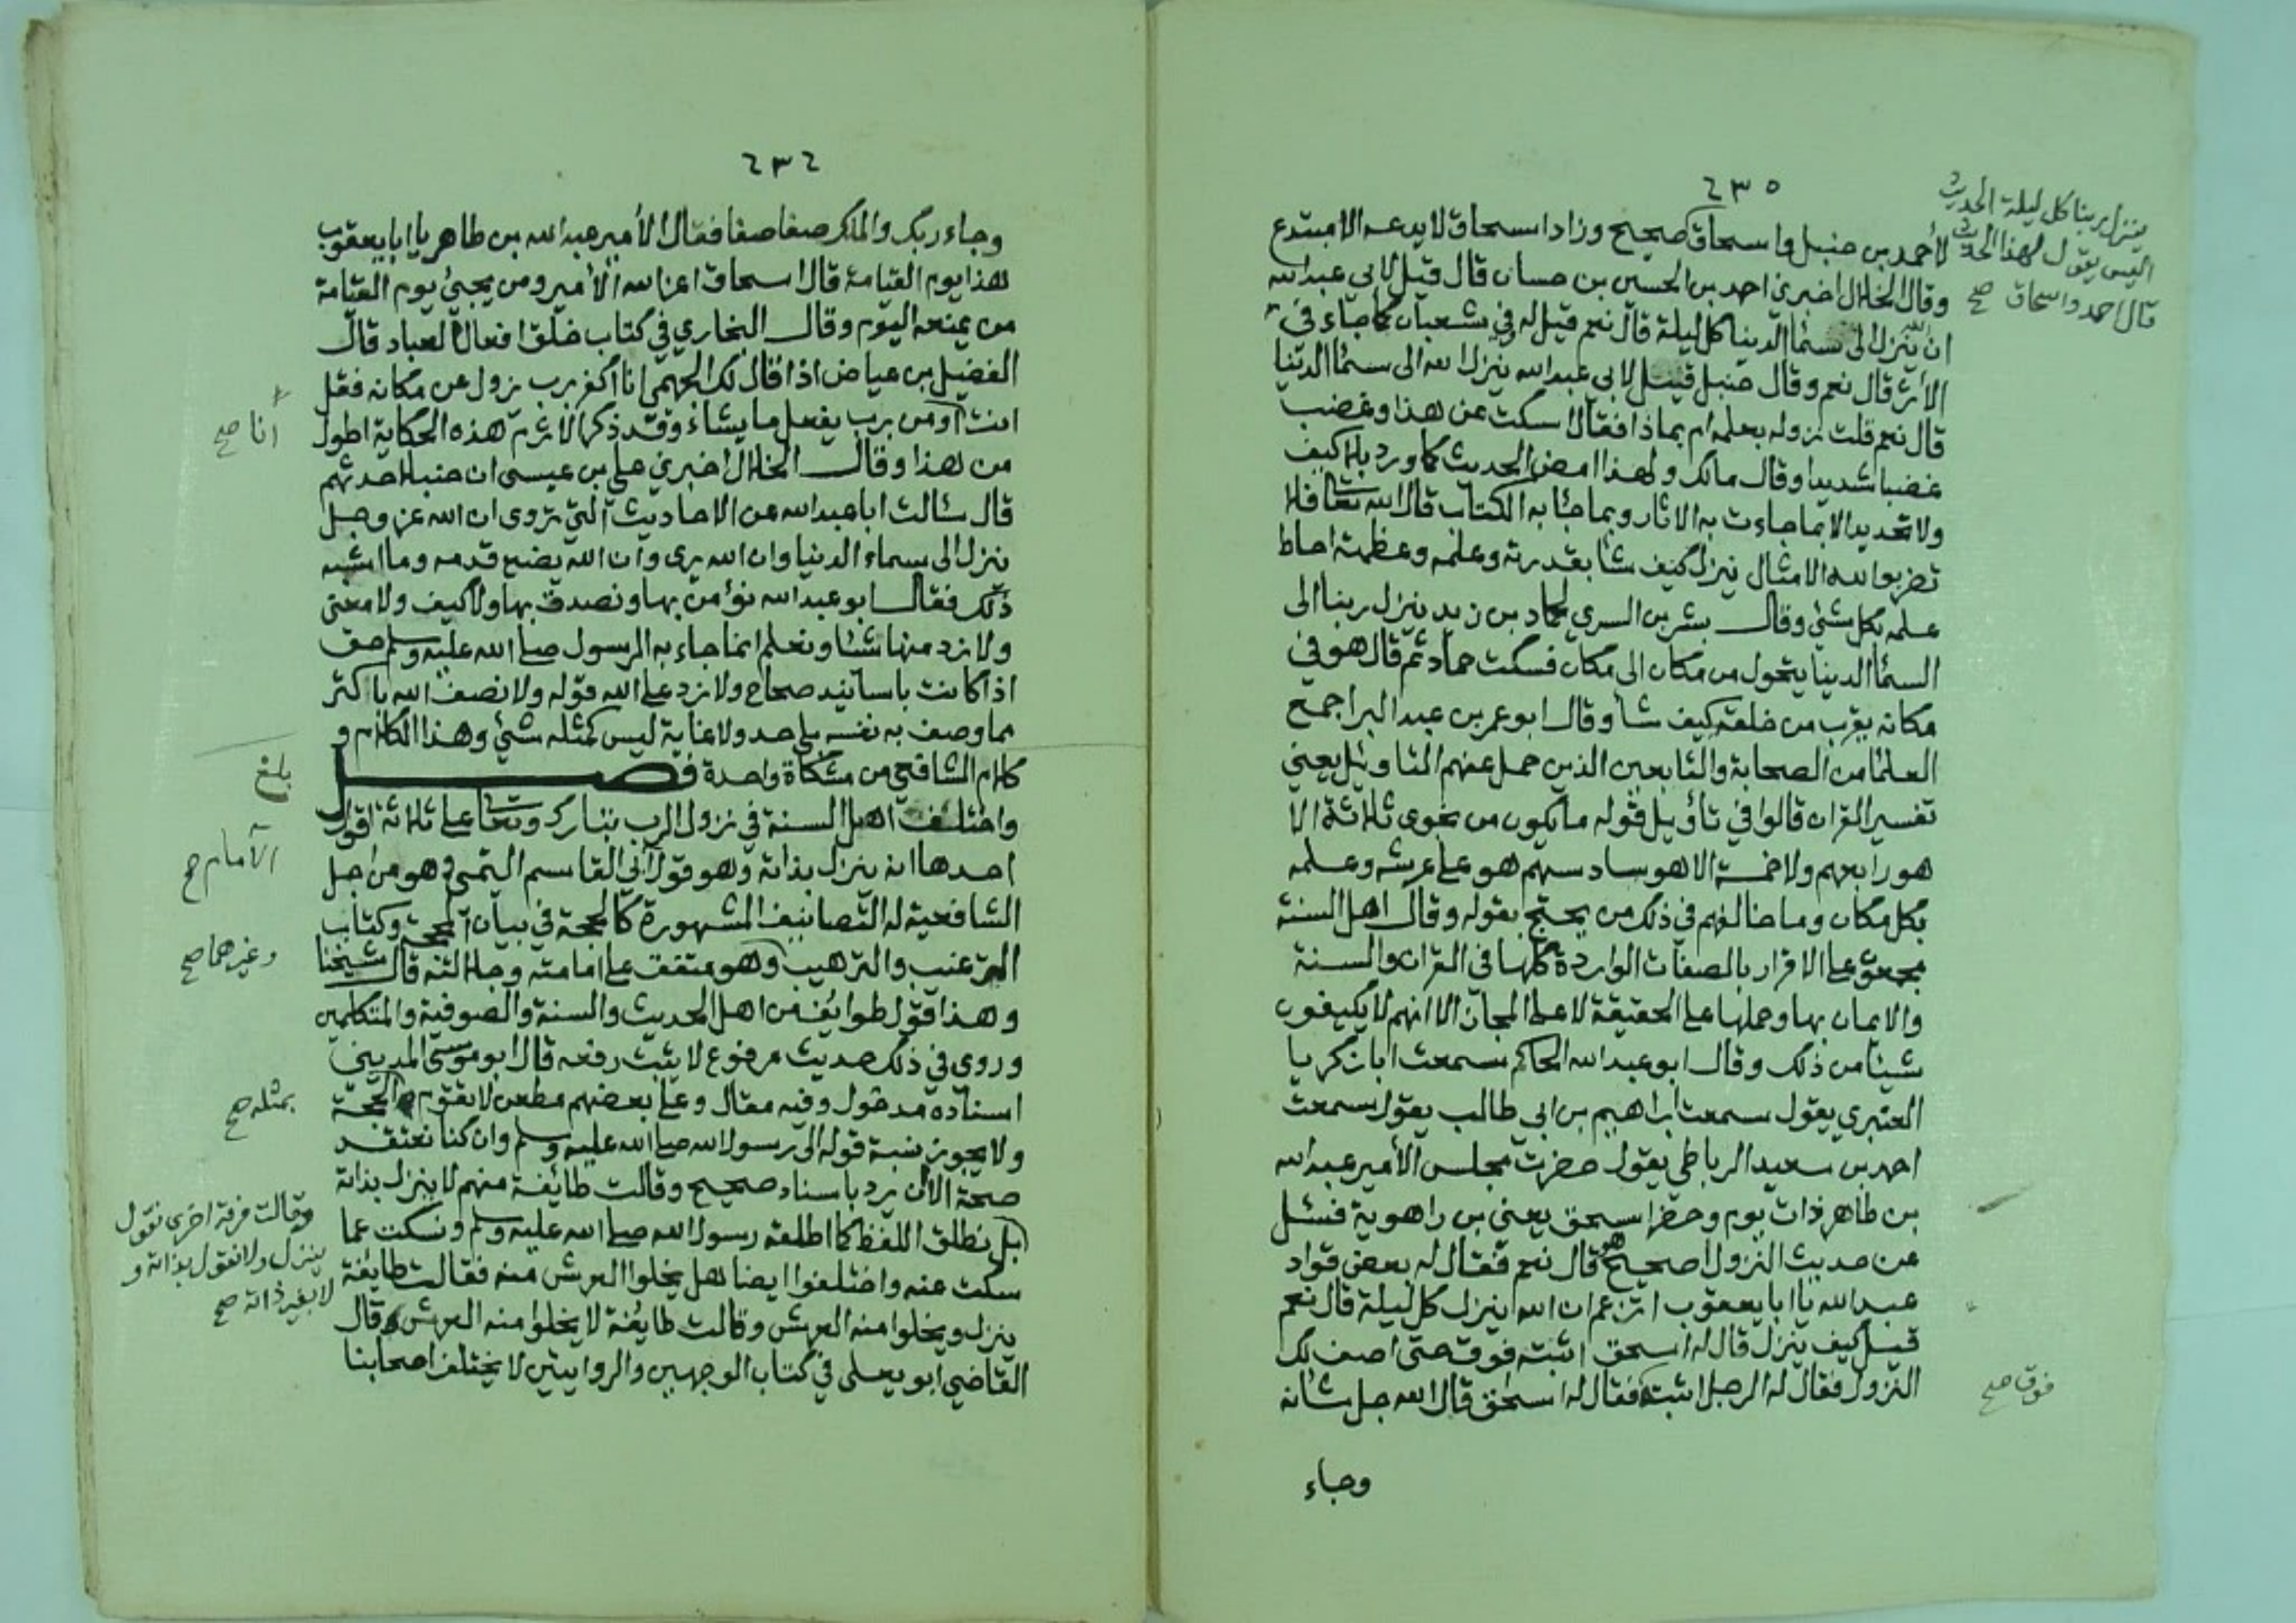 ٢٣٥
ينزل ربنا كل ليلة الحديث
اليس يقول لهذا الحديث
قال احمد واسحاق صح
لأحمد بن حنبل واسحاق صحيح وزاد اسحاق لا يدعه الا مبتدع
وقال الخلال اخبرني احمد بن الحسين بن حسان قال قيل لابي عبد الله
ان الله ينزل الى سمٓا الدنيا كل ليلة قال نعم قيل له وفي شعبان كما جاء في
الاثر قال نعم وقال حنبل قيل لابي عبد الله ينزل الله الى سمٓا الدنيا
قال نعم قلت نزوله بعلمه ام بماذا فقال اسكت عن هذا وغضب
غضبا شديدا وقال مالك ولهذا امض الحديث كما ورد بلا كيف
ولا تحديد الا بما جاءت به الاثار وبما جٓا به الكتاب قال الله تعٓا فلا
تضربوا لله الامثال ينزل كيف شٓا بقدرته وعلمه وعظمته احاط
علمه بكل شئ وقال بشر بن السري لحماد بن زيد ينزل ربنا الى
السمٓا الدنيا يتحول من مكان الى مكان فسكت حماد ثم قال هو في
مكانه يقرب من خلقه كيف شٓا وقال ابو عمر بن عبد البر اجمع
العلمٓا من الصحابة والتابعين الذين حمل عنهم التاويل يعني
تفسير القران قالوا في تأويل قوله ما يكون من نجوى ثلاثة الا
هو رابعهم ولا خمسة الا هو سادسهم هو على عرشه وعلمه
بكل مكان وما خالفهم في ذلك من يحتج بقوله وقال اهل السنة
مجمعون على الاقرار بالصفات الواردة كلها في القران والسنة
والايمان بها وحملها على الحقيقة لا على المجاز الا انهم لا يكيفون
شيئا من ذلك وقال ابو عبد الله الحاكم سمعت ابا زكريا
العنبري يقول سمعت ابراهيم بن ابي طالب يقول سمعت
احمد بن سعيد الرباطي يقول حضرت مجلس الأمير عبد الله
بن طاهر ذات يوم وحضر اسحق يعني بن راهوية فسئل
عن حديث النزول اصحيح هو قال نعم فقال له بعض قواد
عبد الله يا ابا يعقوب اتزعم ان الله ينزل كل ليلة قال نعم
قيل كيف ينزل قال له اسحق اثبته فوق حتى اصف لك
النزول فقال له الرجل اثبته فقال له اسحق قال الله جل شانه
فوق صح
وجاء
٢٣٦
وجاء ربك والملك صفا صفا فقال الأمير عبد الله بن طاهر يا ابا يعقوب
هذا يوم القيامة قال اسحاق اعز الله الأمير ومن يجئ يوم القيامة
من يمنعه اليوم وقال البخاري في كتاب خلق افعال العباد قال
الفضيل بن عياض اذا قال لك الجهمي انا اكفر برب يزول عن مكانه فقل
انت اومن برب يفعل ما يشاء وقد ذكر الاثرم هذه الحكاية اطول
أنا صح
من هذا وقال الخلال اخبرني علي بن عيسى ان حنبلا حدثهم
قال سٔالت ابا عبد الله عن الاحاديث التي تروى ان الله عز وجل
ينزل الى سماء الدنيا وان الله يرى وان الله يضع قدمه وما اشبه
ذلك فقال ابو عبد الله نؤمن بها ونصدق بها ولا كيف ولا معنى
ولا نرد منها شئا ونعلم ان ما جاء به الرسول صلى الله عليه وسلم حق
اذا كانت باسانيد صحاح ولا نرد على الله قوله ولا نصف الله باكثر
مما وصف به نفسه بلا حد ولا غاية ليس كمثله شئ وهذا الكلام و
كلام الشافعي من مشكاة واحدة فصل
بلغ
واختلف اهل السنة في نزول الرب تبارك وتعٓا على ثلاثة اقوال
احدها انه ينزل بذاته وهو قول أبي القاسم التيمي وهو من اجل
الأمام صح
الشافعية له التصانيف المشهورة كالحجة في بيان المحجة وكتاب
الترغيب والترهيب وهو متفق على امامته وجلالته قال شيخنا
وغيرهما صح
وهذا قول طوايف من اهل الحديث والسنة والصوفية والمتكلمين
وروى في ذلك حديث مرفوع لا يثبت رفعه قال ابو موسى المديني
اسناده مدخول وفيه مقال وعلى بعضهم مطعن لا تقوم الحجة
بمثله صح
ولا يجوز نسبة قوله الى رسول الله صلى الله عليه وسلم وان كنا نعتقد
صحة الا ان يرد باسناد صحيح وقالت طائفة منهم لا ينزل بذاته
وقالت فرقة اخرى نقول
ينزل ولا نقول بذاته و
لا بغير ذاته صح
بل نطلق اللفظ كما اطلقه رسول الله صلى الله عليه وسلم ونسكت عما
سكت عنه واختلفوا ايضا هل يخلوا العرش منه فقالت طايفة
ينزل ويخلوا منه العرش وقالت طايفة لا يخلوا منه العرش وقال
القاضي ابو يعلى في كتاب الوجهين والروايتين لا يختلف اصحابنا